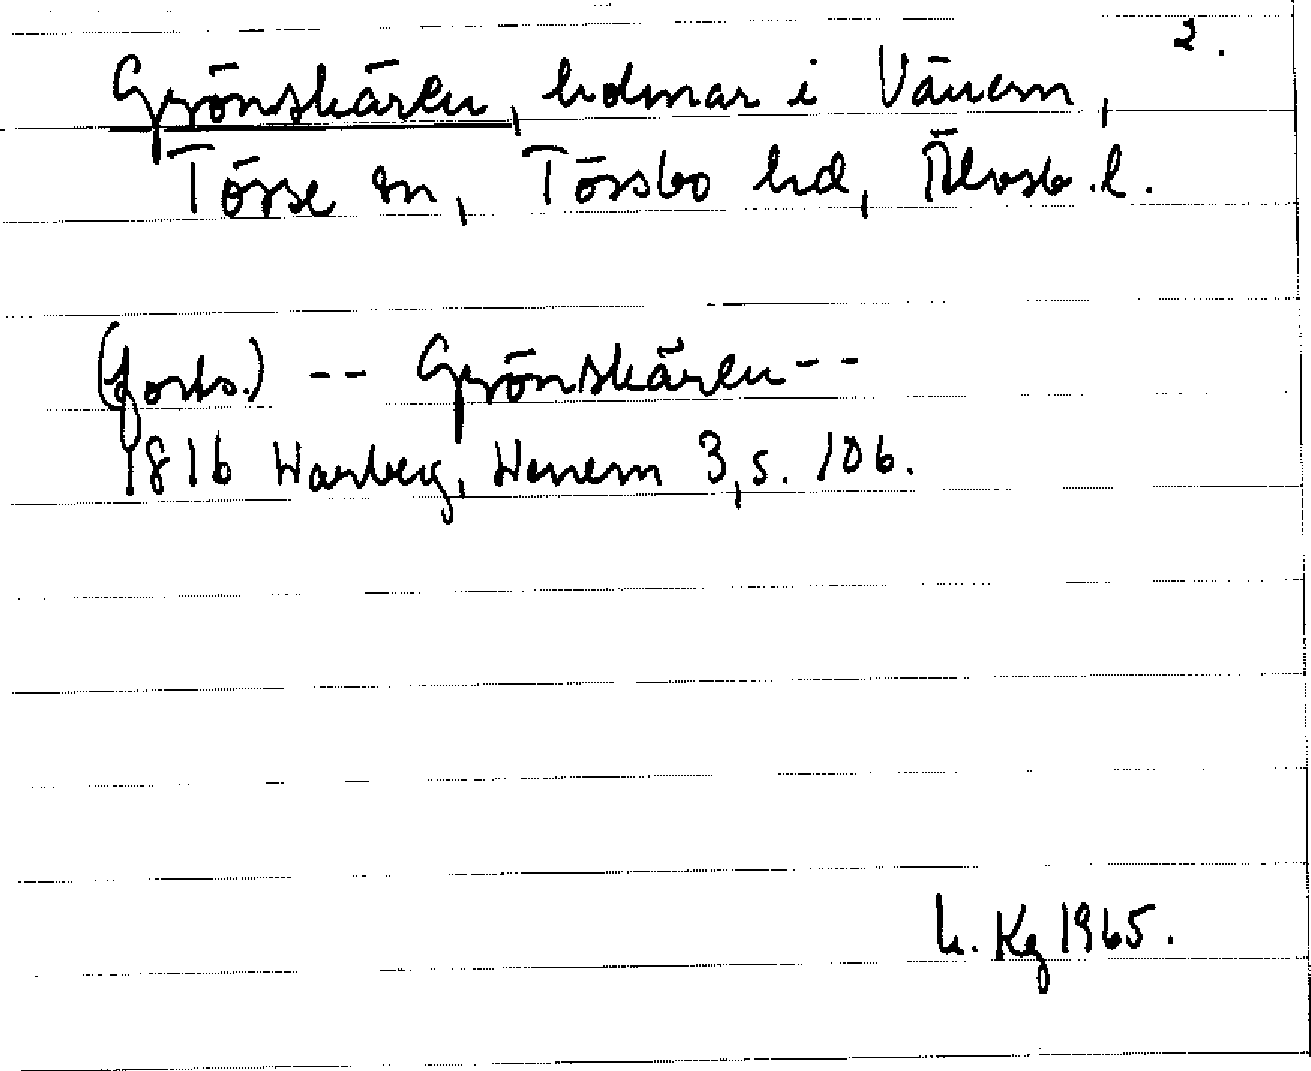 2.
Grönskären, holmar i Vänern,
Tösse sn, Tössbo hd, Älvsb. l.
(forts.) -- Grönskären --
1816 Warberg, Wenern 3, s. 106.
h. Kg 1965.